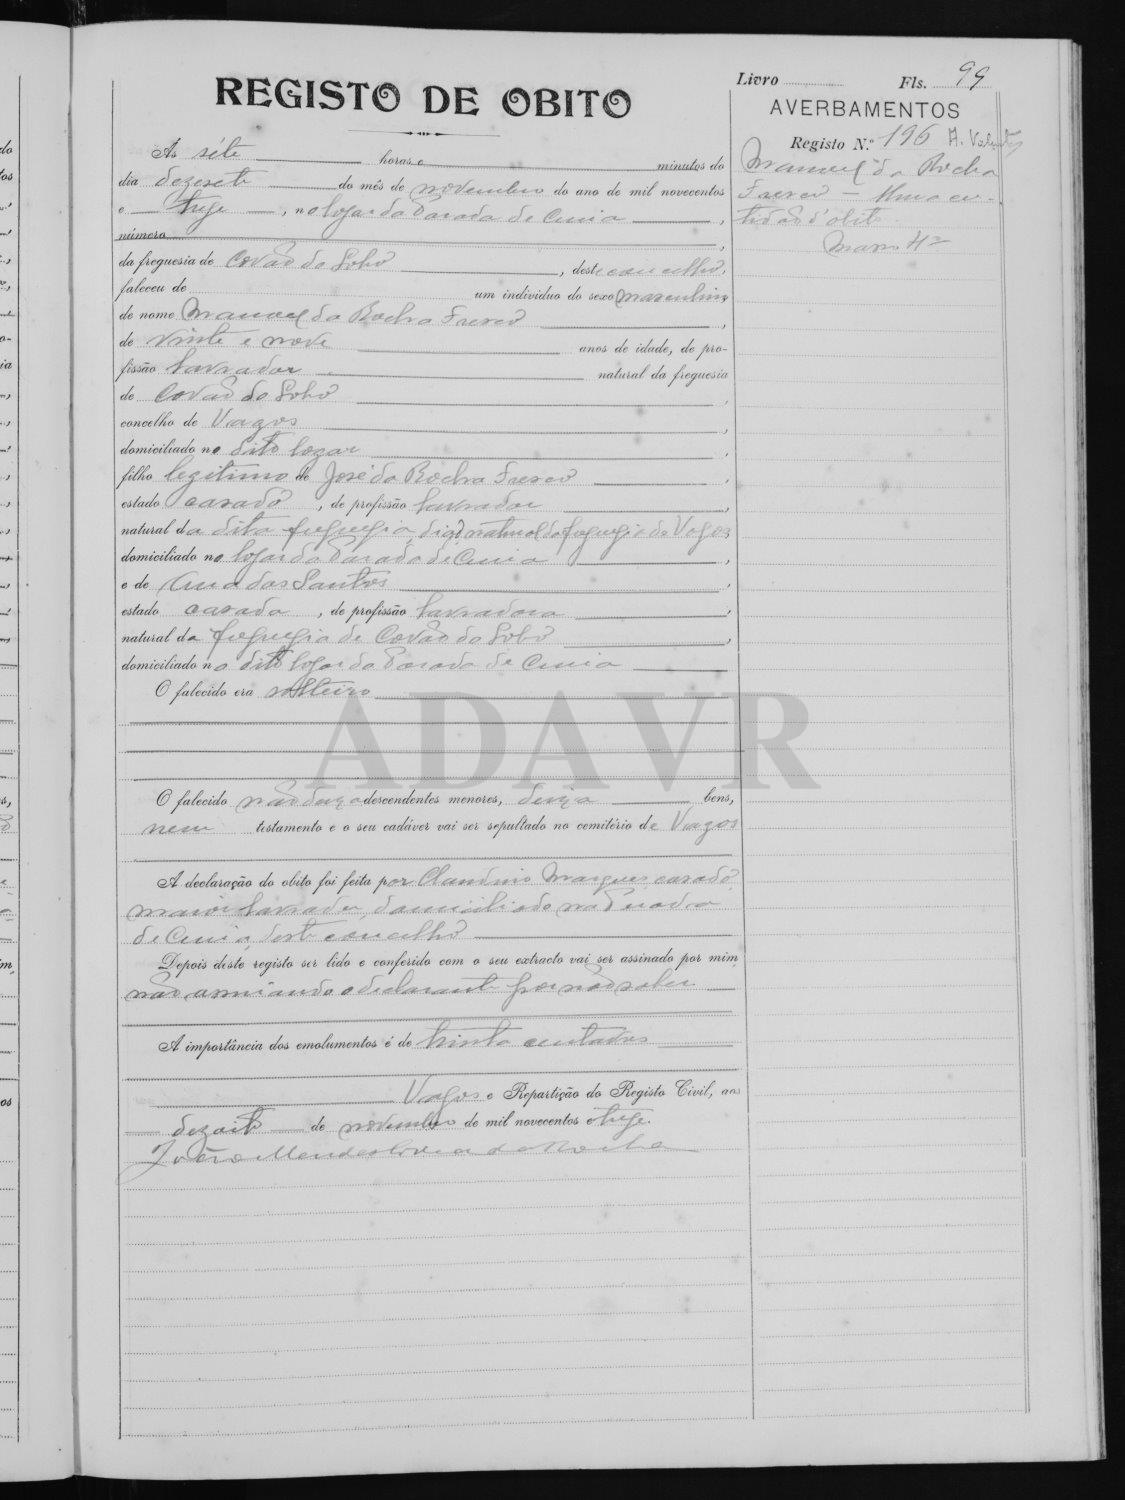 Livro Fls. 99
REGISTO DE OBITO
AVERBAMENTOS
Registo N.º 196
Manuel da Rocha
Freno — Uma cer-
tidão d'obito
As séte horas e minutos do
dia dezesete do mês de novembro do ano de mil novecentos
e treze, no logar da Parada de Cima,
número,
da freguesia de Covão do Lobo, deste concelho,
faleceu de um individuo do sexo masculino
de nome Manoel da Rocha,
de vinte e nove anos de idade, de pro-
fissão lavrador natural da freguesia
de Covão do Lobo,
concelho de Vagos,
domiciliado no dito logar
filho legitimo de José da Rocha,
estado casado, de profissão lavrador,
natural da dita freguesia, digo, natural da freguesia de Vagos
domiciliado no logar da Parada de Cima,
e de Ana dos Santos,
estado casada, de profissão lavradora,
natural da freguesia de Covão do Lobo,
domiciliado no dito logar da Parada de Cima
O falecido era solteiro
ADAVR
O falecido não deixa descendentes menores, deixa bens,
nem testamento e o seu cadáver vai ser sepultado no cemitério de Vagos
A declaração do obito foi feita por Claudino Marques, casado,
maior lavrador, domiciliado na Parada
de Cima, deste concelho
Depois deste registo ser lido e conferido com o seu extracto vai ser assinado por mim,
não assinando o declarante por não saber
A importância dos emolumentos é de trinta centavos
Vagos e Repartição do Registo Civil, aos
dezoito de novembro de mil novecentos e treze.
João Mendes da Rocha